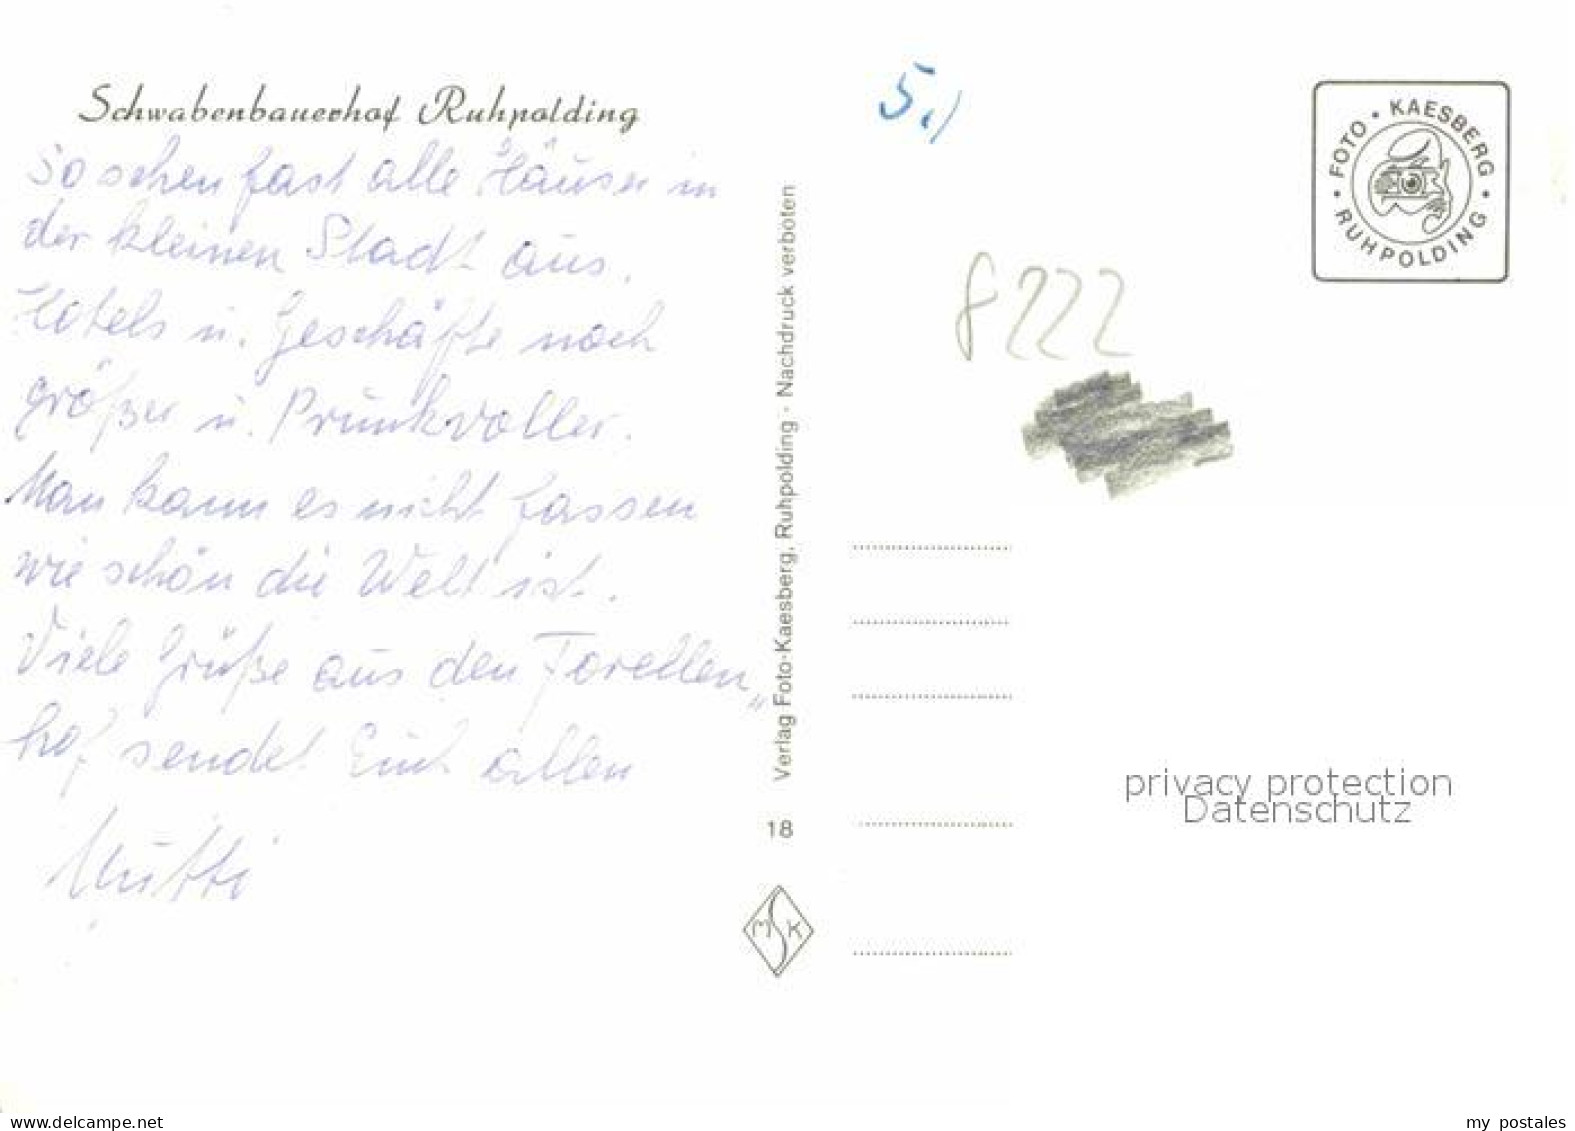 Schwabenbauerhof Ruhpolding
So sehen fast alle Häuser in
der kleinen Stadt aus.
Hotels u. Geschäfte noch
größer u. Prunkvoller.
Man kann es nicht fassen
wie schön die Welt ist.
Viele Grüße aus den Forellen„
hof sendet Euch allen
Mutti
Verlag Foto-Kaesberg, Ruhpolding · Nachdruck verboten
18
M S K
5.)
8222
• FOTO • KAESBERG • RUHPOLDING
privacy protection
Datenschutz
www.delcampe.net
my postales